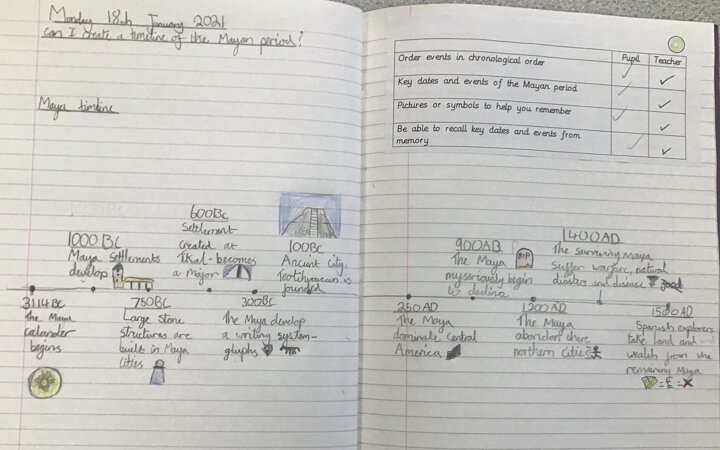 Monday 18th January 2021
Can I create a timeline of the Mayan period?
Maya timeline
1000 BC
Maya settlements
develop
600BC
Settlement
created at
Tikal-becomes
a major
100BC
Ancient city
Teotihuacan is
founded
3114BC
The Maya
calander
begins
750BC
Large stone
structures are
built in Maya
cities
300BC
The Maya develop
a writing system-
glyphs
Pupil Teacher
Order events in chronological order
Key dates and events of the Mayan period
Pictures or symbols to help you remember
Be able to recall key dates and events from
memory
900AD
The Maya
mysteriously begin
to decline
RIP
1400AD
The surviving Maya
suffer warfare, natural
disasters and disease
250AD
The Maya
dominate Central
America
1200AD
The Maya
abandon there
northern cities
1500AD
Spanish explorers
take land and
wealth from the
remaining Maya
= £ =